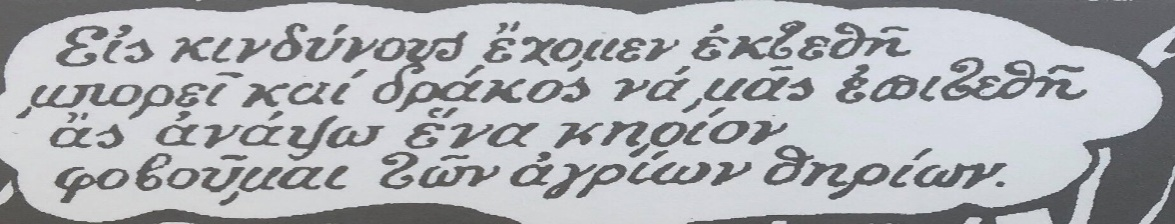 Εἰς κινδύνους ἔχομεν ἐκτεθῆ
μπορεῖ καί δράκος νά μᾶς ἐπιτεθῆ
ἄς ἀνάψω ἕνα κηρίον
φοβοῦμαι τῶν ἀγρίων θηρίων.